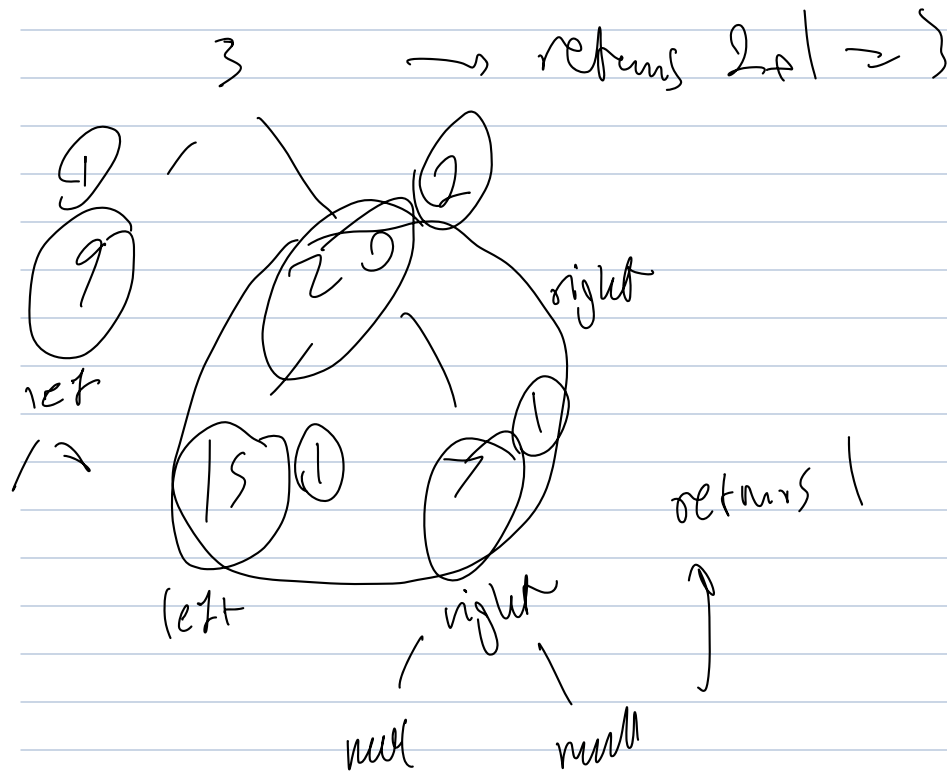 3 → returns 2+1 = 3
1
2
9
20
right
left
15 1
7 1
returns 1
left right
null null